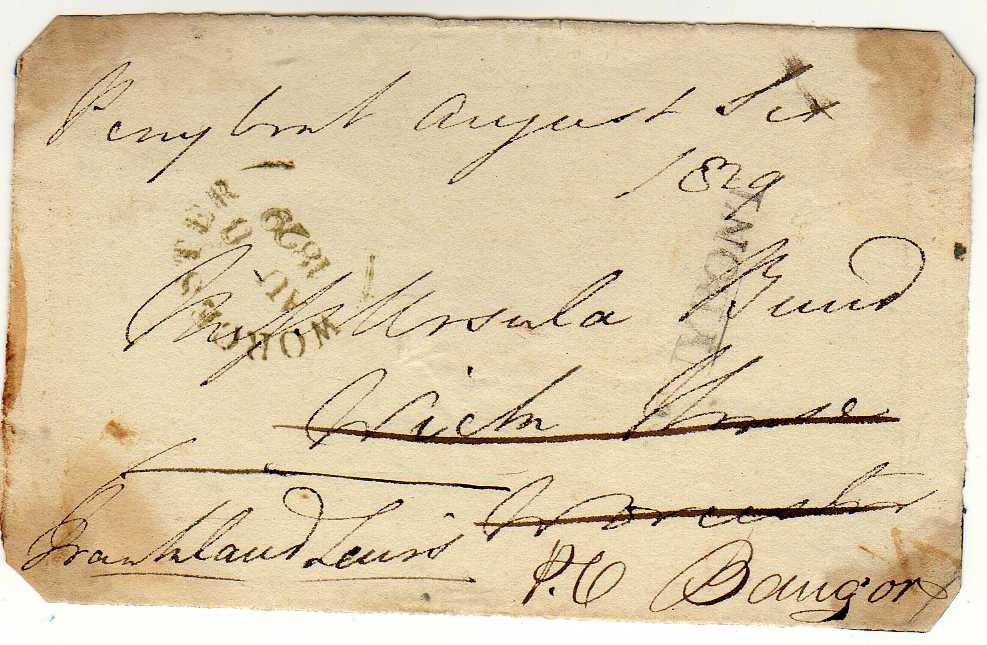 Penybont August Six
1829
WORCESTER
9 AU
1829
Miss Ursula Bund
Wick House
Worcester
Frankland Lewis
P.O Bangor